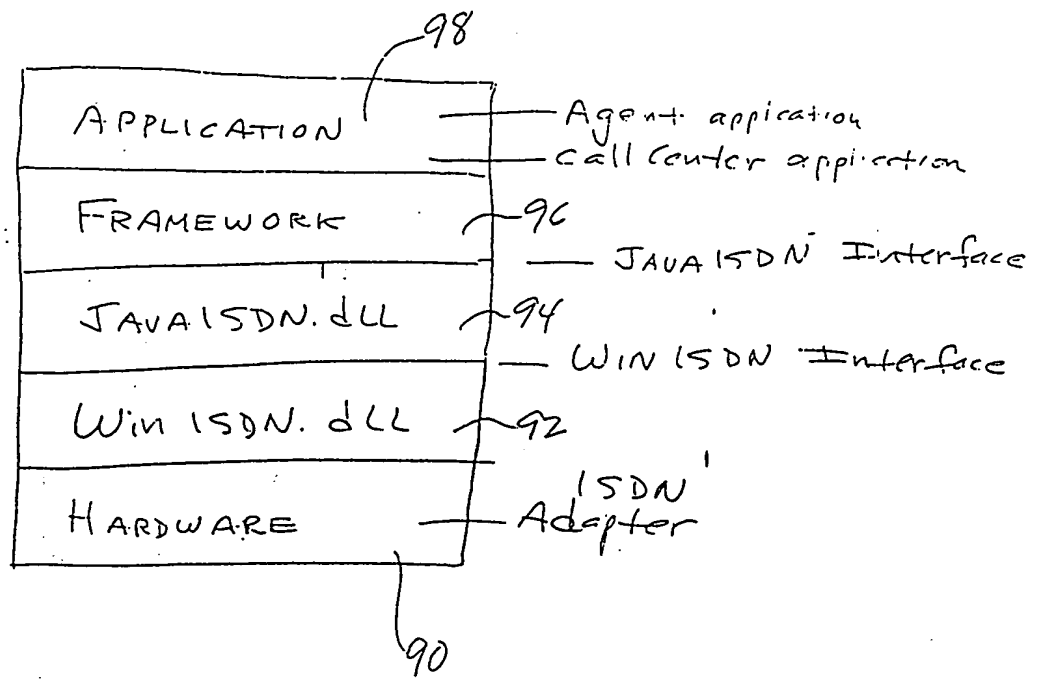 98
APPLICATION
Agent appication
Call Center appication
FRAMEWORK
96
JAVA ISDN Interface
JAVAISDN.dLL
94
WIN ISDN Interface
Win ISDN.dLL
92
HARDWARE
ISDN
Adapter
90